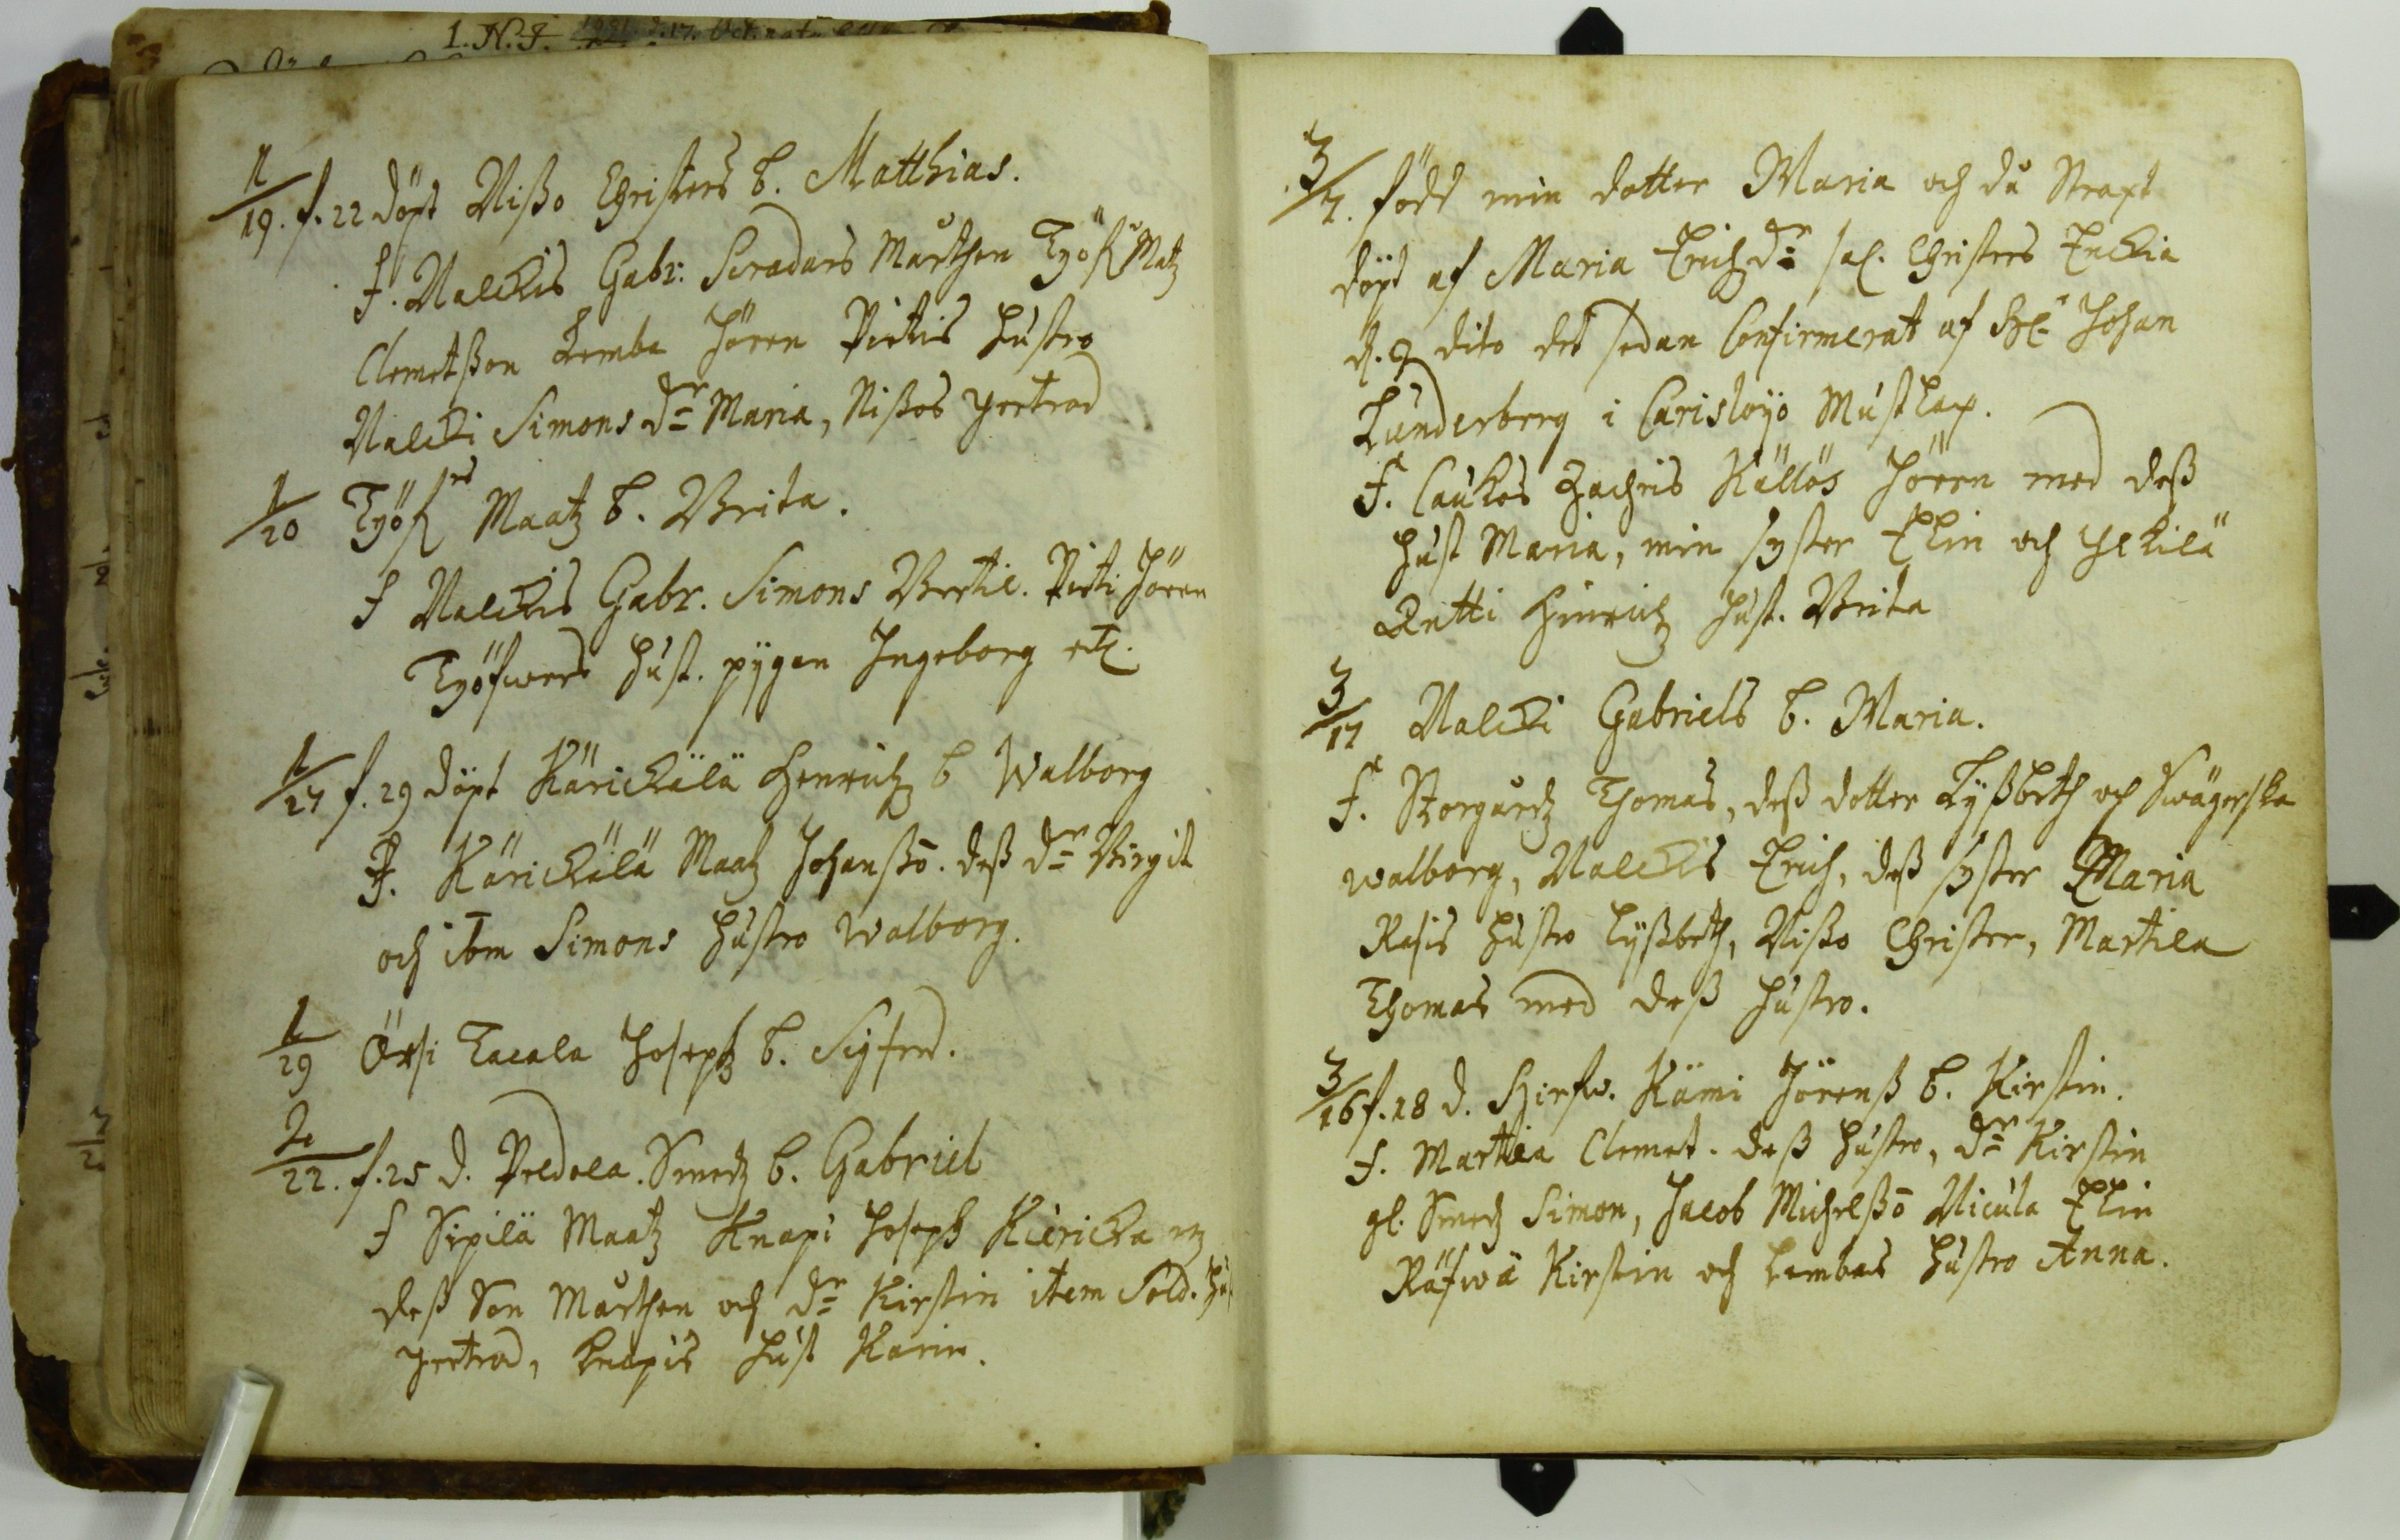 1/19. f. 22 döpt Nißo Christers b. Matthias.
F. Nalckis Gabr. Mårthen Työfr Matz
Clemetßon Lemba Jören Pertis hustro
Nalcki Simons dr Maria, Nißos gertrud
1/20 Työfrs Maatz b. Brita.
F Nalckis Gabr. Simons Bertil. Perti Jören
Työfwers hust. pygan Ingeborg etc.
1/27 f. 29 döpt Kärickälä Henrichz b Walborg
F. Kärickälä Maatz Johanßo. deß dr Birgit
och ibm Simons hustro Walborg.
1/29 Örsi Tacala Josephz b. Sigfred.
2/22. f. 25 d. Peldola Smedz b. Gabriel
F Sipilä Maatz Knapi Joseph Kiericka
deß Son Mårthen och dr Kirstin item Sold. hu
gertrud, knapis hust Karin.
3/7. född min dotter Maria och då Straxt
döpt af Maria Erichzdr sal. Christers Enckia
d. 9 dito det sedan Confirmerat af Johan
Lunderberg i Carisloyo Mustlax.
F. Caukos Zachris Källös Jören med deß
hust Maria, min syster Elin och Yckilä
Antti Hinrichz hust. Brita
3/17 Nalcki Gabriels b. Maria.
F. Storgårdz Thomas, deß dotter Lyßbeth och Swägerska
walborg, Nalckis Erich, deß syster Maria
Rasis hustro Lyßbeth, Nißo Christer, Martila
Thomas med deß hustro.
3/16 f. 18 d. Hirfw. Kämi Jörenß b. Kirstin.
F. Martila Clemet. deß hustro, dr Kirstin
gl. Smedz Simon, Jacob Michelßo Nicula Elin
Räfwä Kirstin och Lembas hustro Anna.